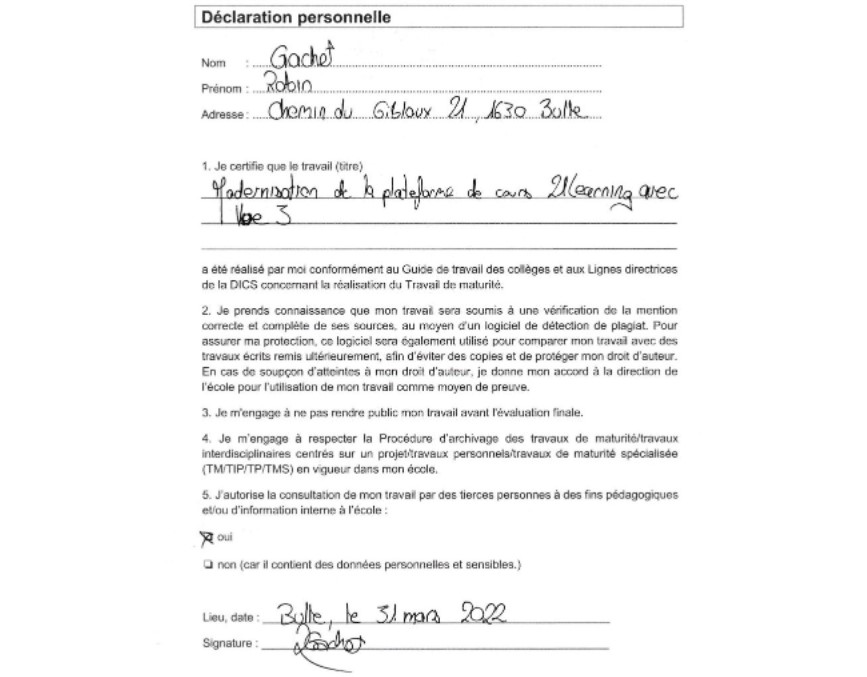 Déclaration personnelle
Nom : Gachet
Prénom : Robin
Adresse : Chemin du Gibloux 21, 1630 Bulle
1. Je certifie que le travail (titre)
Modernisation de la plateforme de cours 21Learning avec
Vue 3
a été réalisé par moi conformément au Guide de travail des collèges et aux Lignes directrices
de la DICS concernant la réalisation du Travail de maturité.
2. Je prends connaissance que mon travail sera soumis à une vérification de la mention
correcte et complète de ses sources, au moyen d'un logiciel de détection de plagiat. Pour
assurer ma protection, ce logiciel sera également utilisé pour comparer mon travail avec des
travaux écrits remis ultérieurement, afin d'éviter des copies et de protéger mon droit d'auteur.
En cas de soupçon d'atteintes à mon droit d'auteur, je donne mon accord à la direction de
l'école pour l'utilisation de mon travail comme moyen de preuve.
3. Je m'engage à ne pas rendre public mon travail avant l'évaluation finale.
4. Je m'engage à respecter la Procédure d'archivage des travaux de maturité/travaux
interdisciplinaires centrés sur un projet/travaux personnels/travaux de maturité spécialisée
(TM/TIP/TP/TMS) en vigueur dans mon école.
5. J'autorise la consultation de mon travail par des tierces personnes à des fins pédagogiques
et/ou d'information interne à l'école :
oui
non (car il contient des données personnelles et sensibles.)
Lieu, date : Bulle, le 31 mars 2022
Signature : RGachet